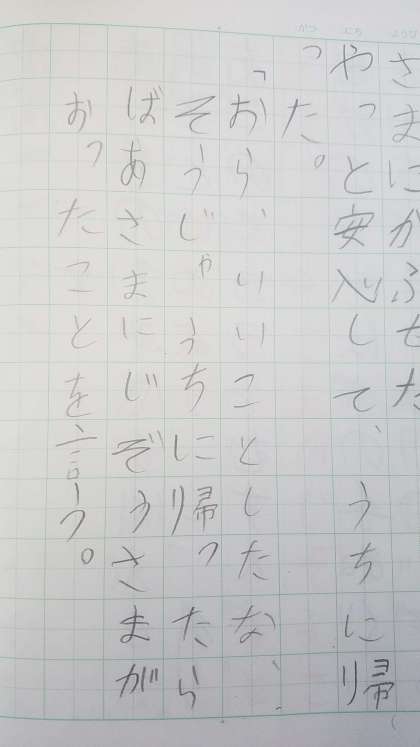 さまにかぶせた
やっと安心して、うちに帰
った。
「おら、いいことしたな、
そうじゃうちに帰ったら
ばあさまにじぞうさまが
おったことを言う。